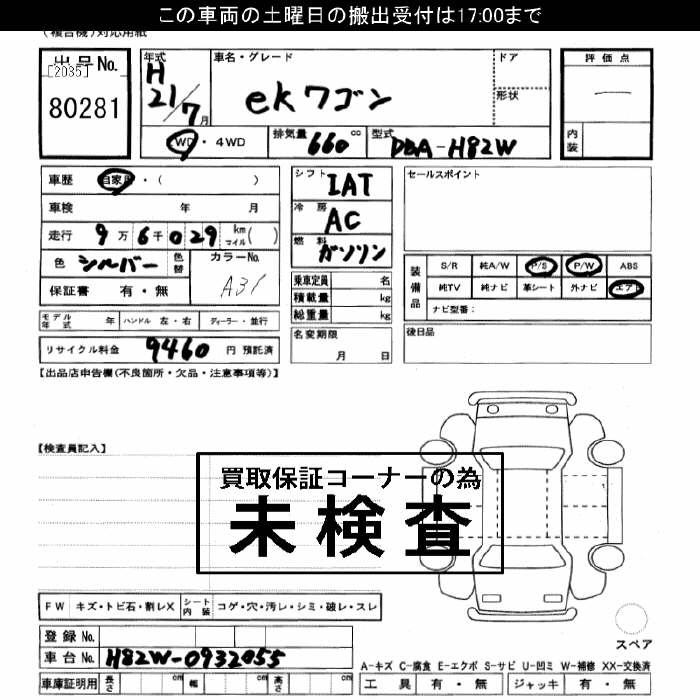 この車両の土曜日の搬出受付は17:00まで
(複合機)対応用紙
出品No.
[2035]
80281
年式
H
21/7月
車名・グレード
ekワゴン
ドア
形状
評価点
内装
2WD・4WD
排気量 660 cc
型式 DBA-H82W
車歴 自家用・( )
車検 年 月
走行 9万6千029 km マイル( )
色 シルバー 色替
カラーNo.
A31
保証書 有・無
シフト IAT
冷房 AC
燃料 ガソリン
乗車定員 名
積載量 kg
総重量 kg
セールスポイント
装備品
S/R 純A/W P/S P/W ABS
純TV 純ナビ 革シート 外ナビ エアB
ナビ型番:
モデル年式 年 ハンドル 左・右 ディーラー・並行
名変期限
月 日
後日品
リサイクル料金 9460 円 預託済
【出品店申告欄(不良箇所・欠品・注意事項等)】
【検査員記入】
買取保証コーナーの為
未検査
FW キズ・トビ石・割レX シート内装 コゲ・穴・汚レ・シミ・破レ・スレ
登録No.
車台No. H82W-0932055
車庫証明用 長さ cm 幅 cm 高さ cm
スペア
A-キズ C-腐食 E-エクボ S-サビ U-凹ミ W-補修 XX-交換済
工具 有・無 ジャッキ 有・無